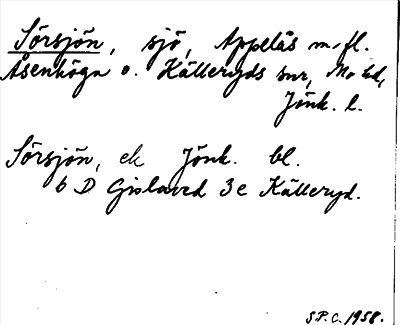 Sörsjön, sjö, Appelås m.fl.
Åsenhöga o. Källeryds snr, Mo hd,
Jönk. l.
Sörsjön, ek Jönk. bl.
6 D Gislaved 3e Källeryd.
S.P.C. 1958.